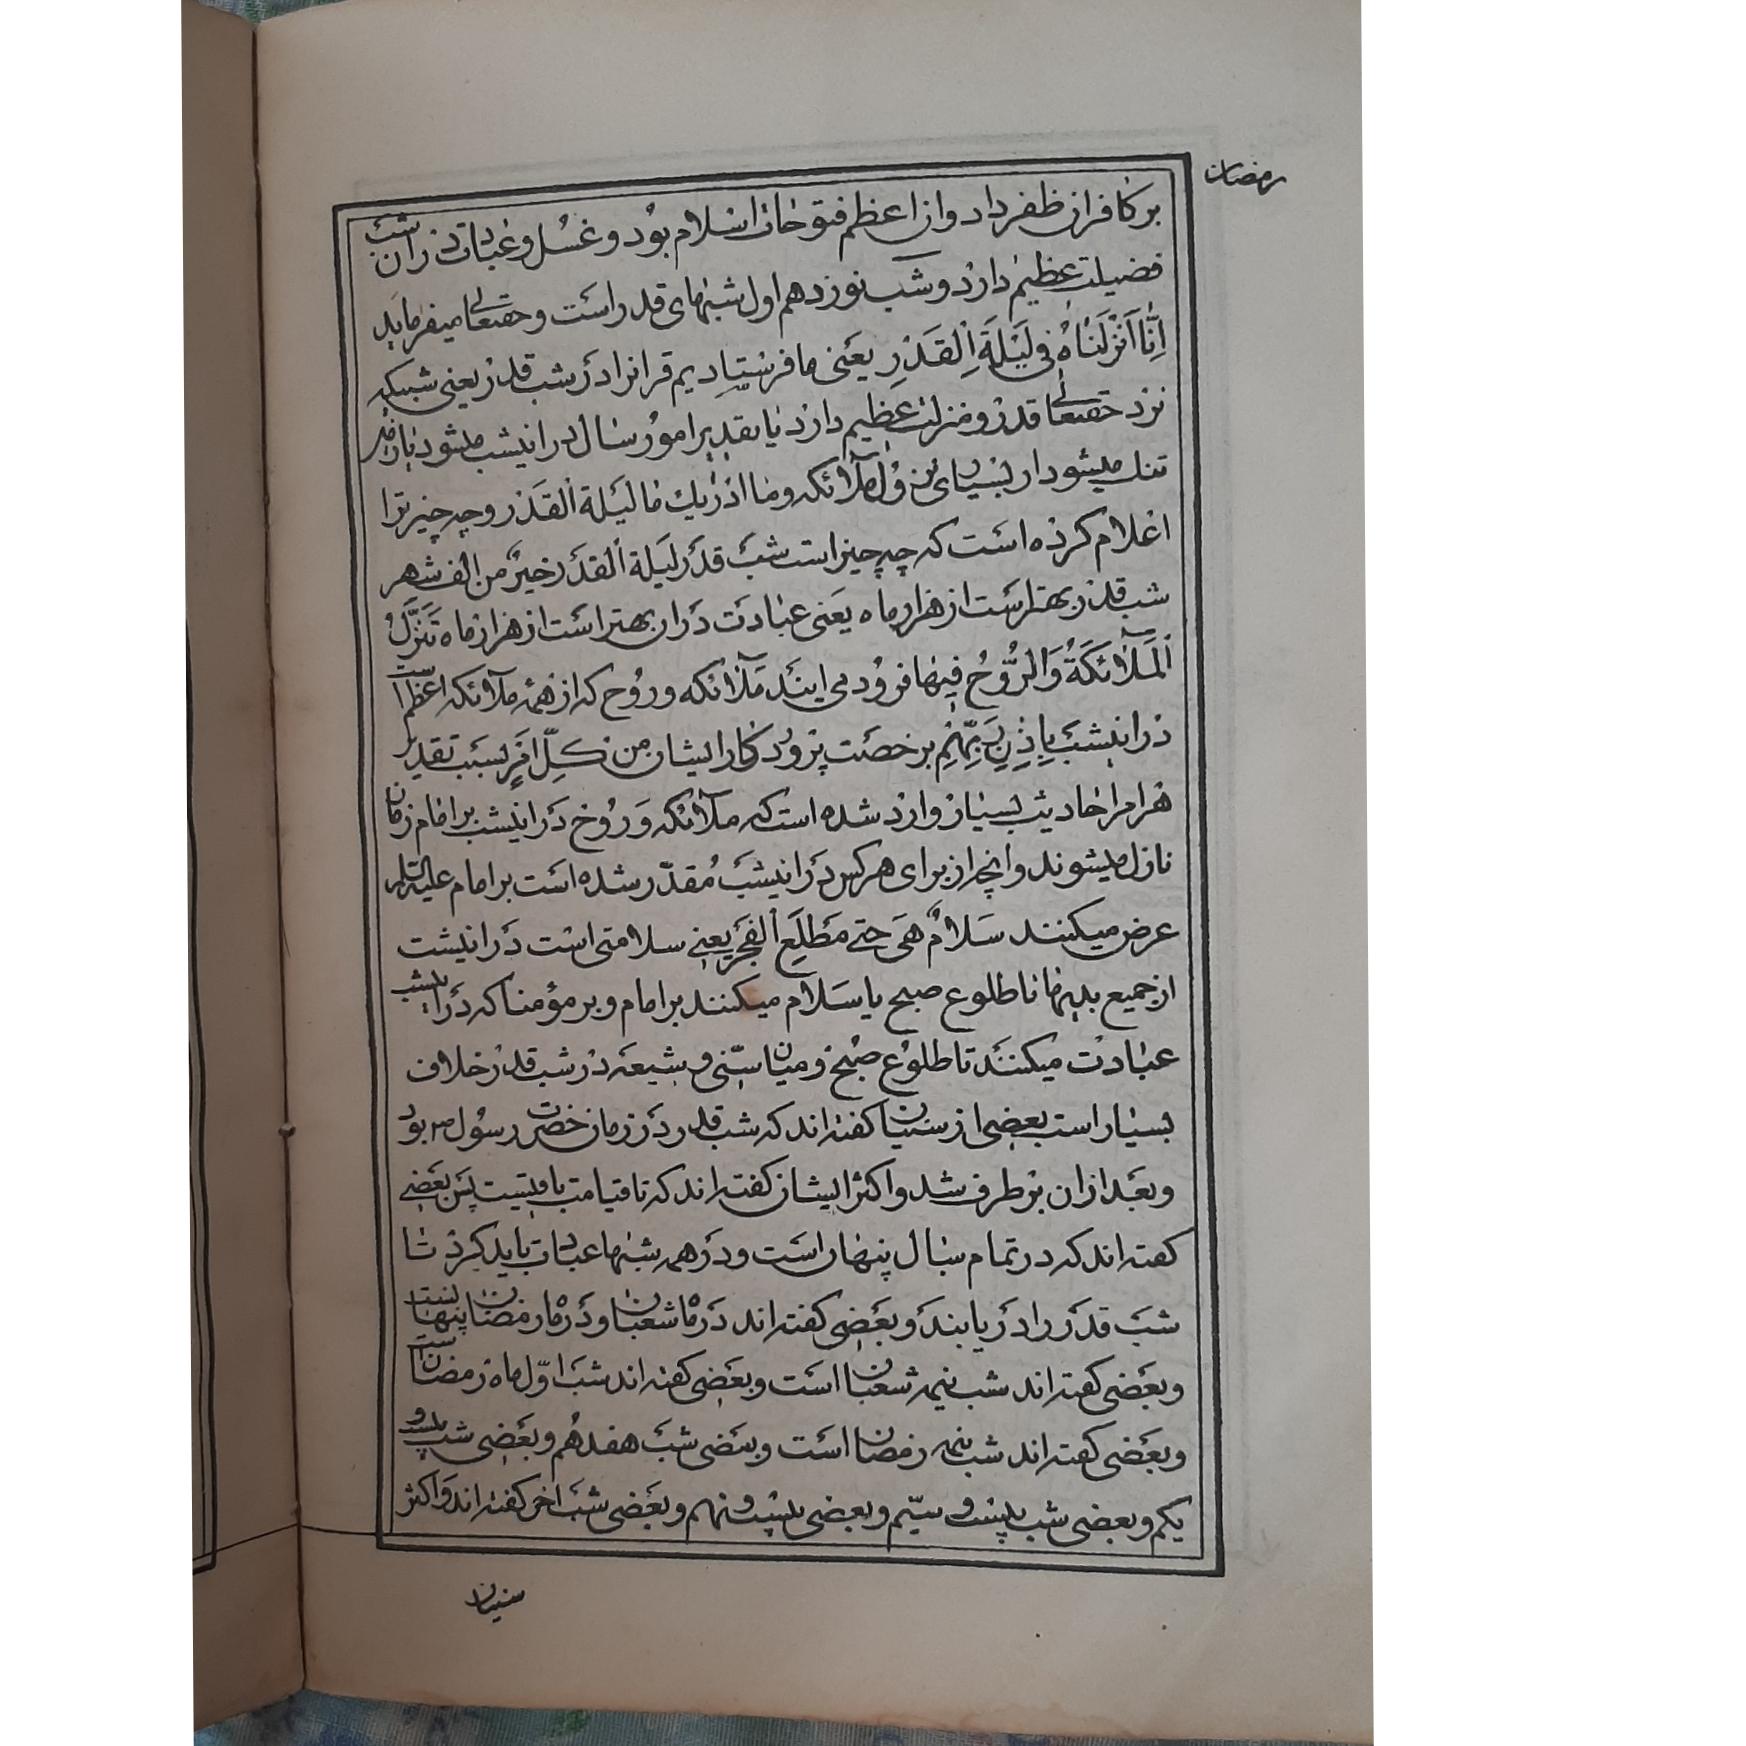 رمضان
بر کافران ظفر داد و ان اعظم فتوحات اسلام بود و غسل و عبادت در ان شب
فضیلت عظیم دارد و شب نوزدهم اول شبهای قدر است و حقتعالی میفرماید
اِنّا اَنْزَلْناهُ فی لَیْلَةِ الْقَدْرِ یعنی ما فرستادیم قرانرا در شب قدر یعنی شبیکه
نزد حقتعالی قدر و منزلت عظیم دارد یا تقدیر امور سال در انیشب میشود یا زمین
تنك میشود از بسیاری نزول ملآئکه وما ادریك ما لیلة القدر و چه چیز ترا
اعلام کرده است که چه چیز است شب قدر لیلة القدر خیرٌ من الف شهر
شب قدر بهتر است از هزار ماه یعنی عبادت در ان بهتر است از هزار ماه تَنَزَّلُ
الْمَلآئکَةُ وَالرُّوحُ فیها فرود می ایند ملآئکه و روح که از همه ملآئکه اعظم است
در انیشب بِاِذْنِ رَبِّهِمْ برخصت پرورد کار ایشان من کلِّ اَمْرٍ بسبب تقدیر
هر امر احادیث بسیار وارد شده است که ملآئکه و روح در انیشب بر امام زمان
نازل میشوند و انچه از برای هر کس در انیشب مُقدّر شده است بر امام علیه السلام
عرض میکنند سَلامٌ هی حتی مَطْلَعِ الْفَجْر یعنی سلامتی است در انیشب
از جمیع بدیها تا طلوع صبح یا سلام میکنند بر امام و بر مؤمنا که در انیشب
عبادت میکنند تا طلوع صبح و میان سنّی و شیعه در شب قدر خلاف
بسیار است بعضی از سنیان کفته اند که شب قدر در زمان حضرت رسول ص بود
و بعد از ان بر طرف شد و اکثر ایشان کفته اند که تا قیامت باقیست پس بعضی
کفته اند که در تمام سال پنهان است و در همه شبها عبادت باید کرد تا
شب قدر را در یابند و بعضی کفته اند در ماه شعبان و در ماه رمضان پنهانست
و بعضی کفته اند شب نیمه شعبان است و بعضی کفته اند شب اوّل ماه رمضان است
و بعضی کفته اند شب نیمه رمضان است و بعضی شب هفدهم و بعضی شب بیست و
یکم و بعضی شب بیست و سیّم و بعضی بیست و نهم و بعضی شب اخر کفته اند و اکثر
سنیان